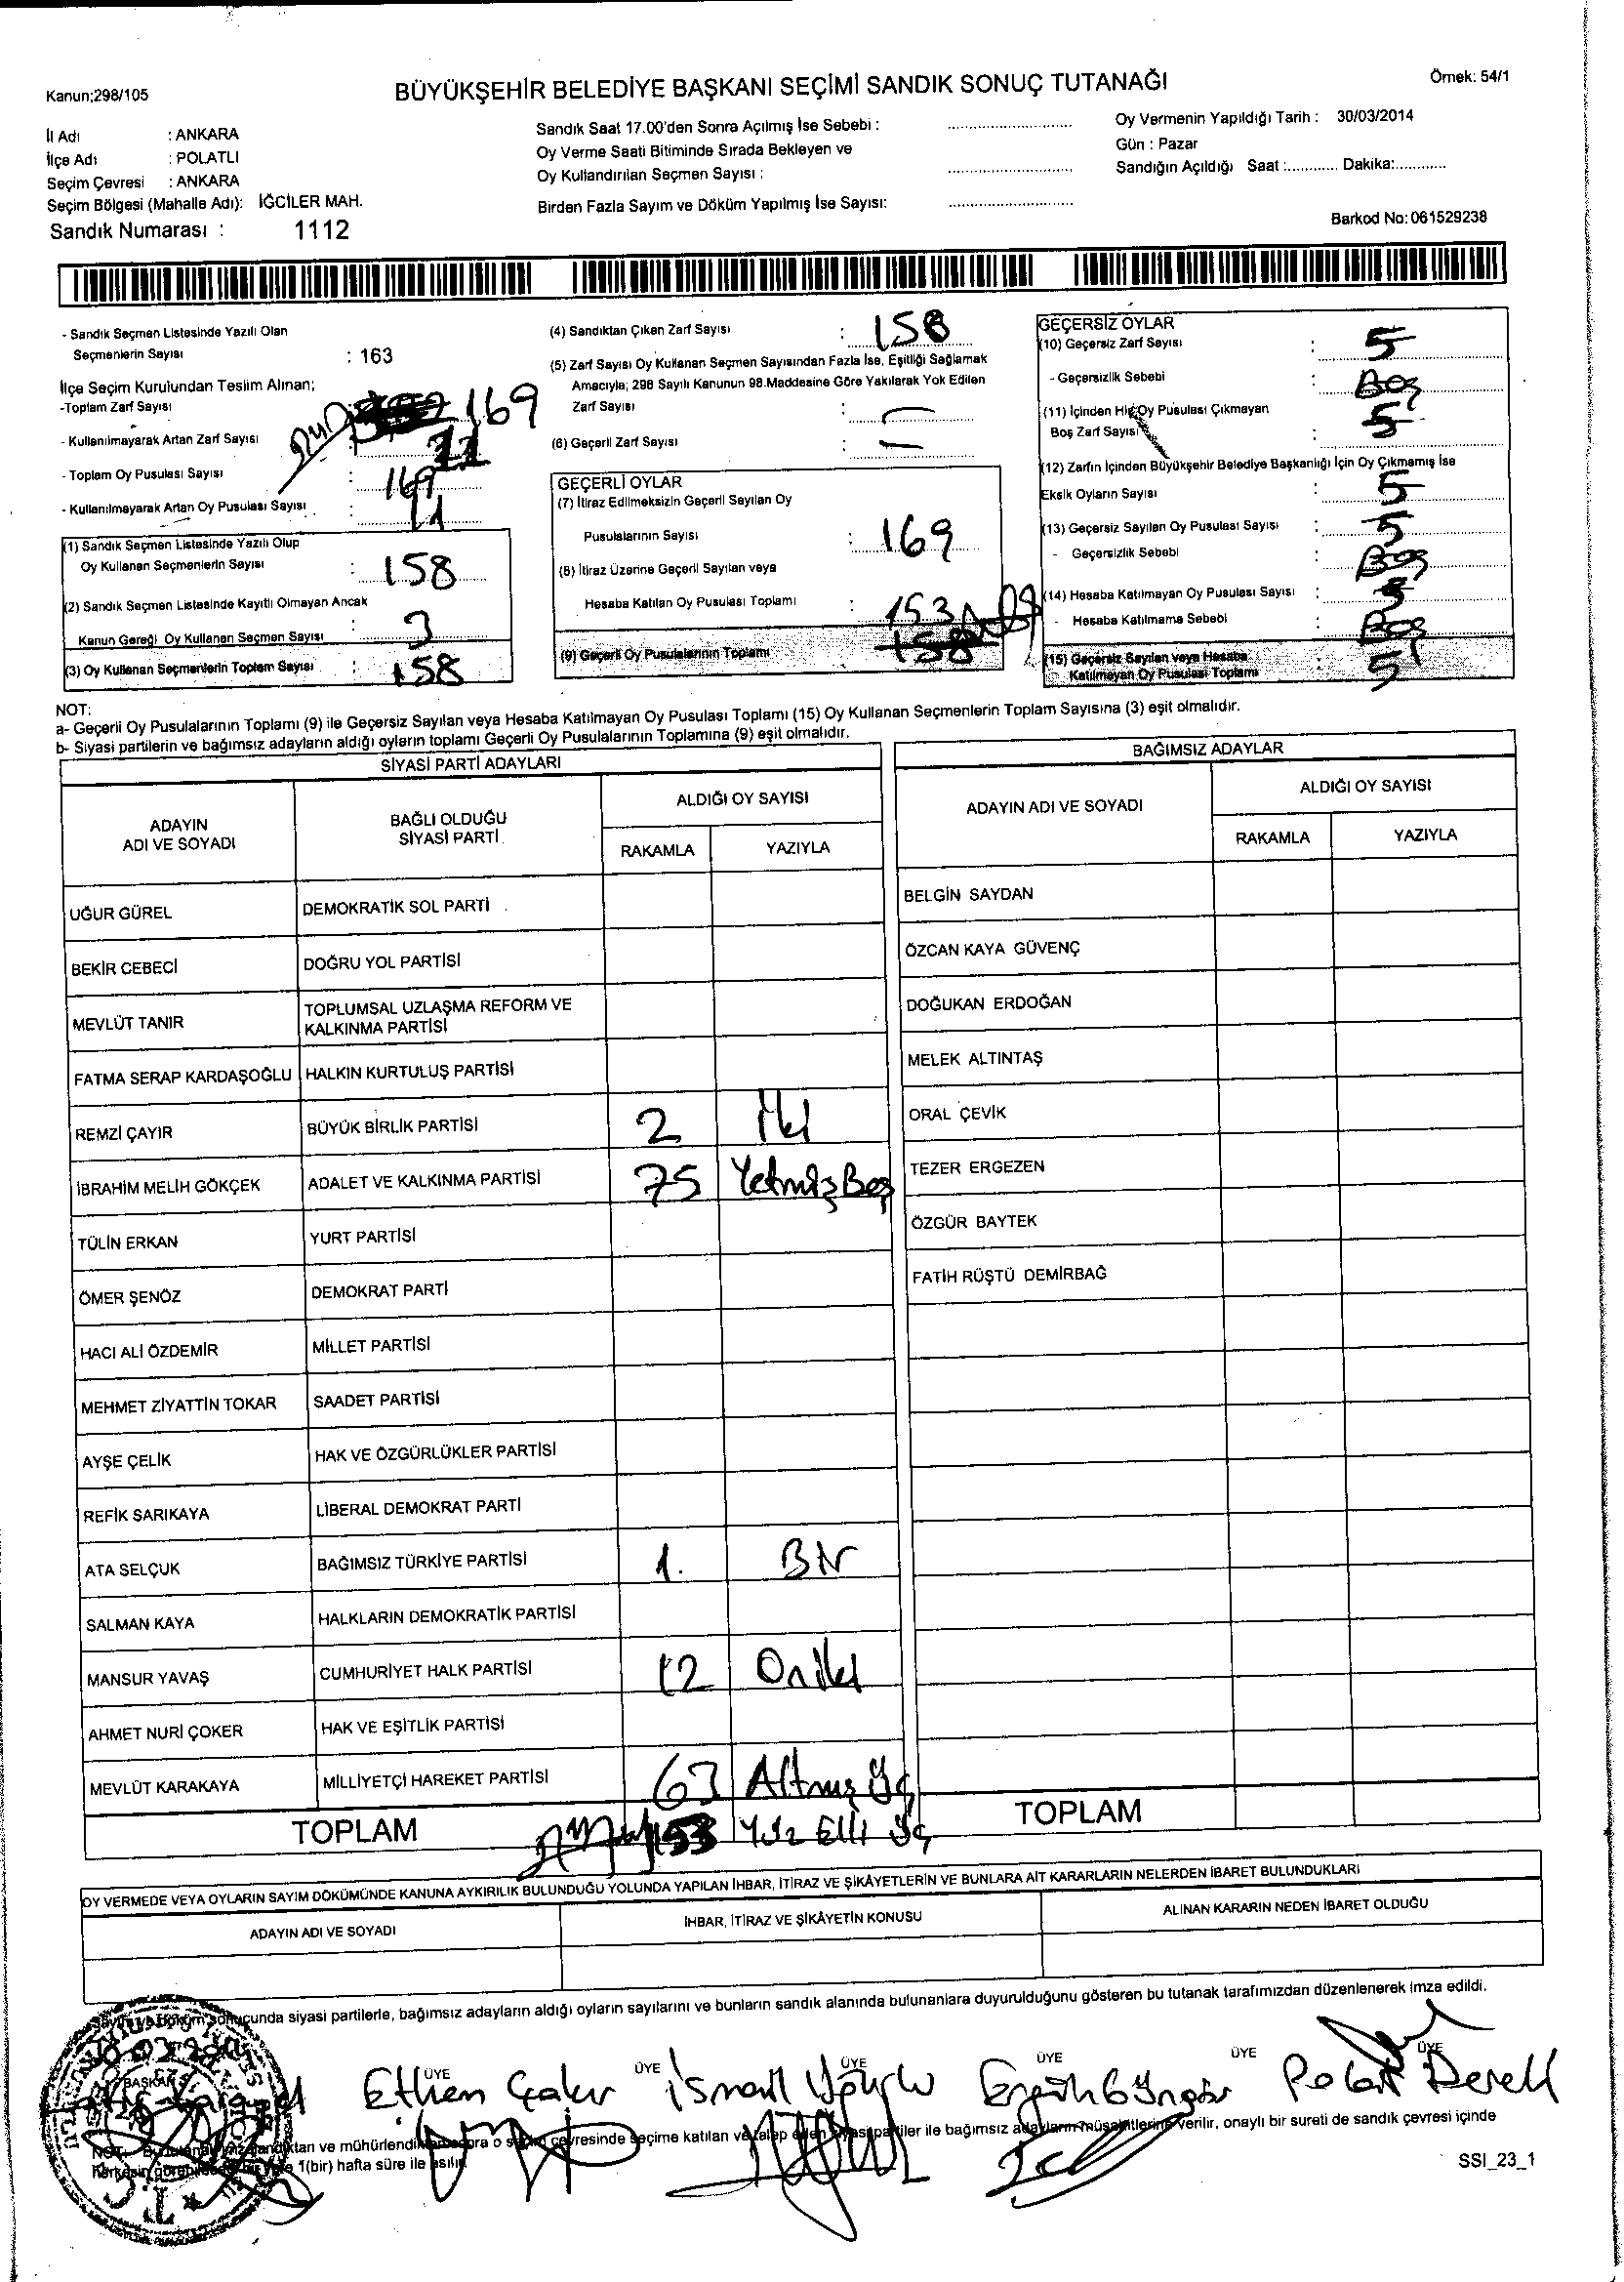 Kanun;298/105
BÜYÜKŞEHİR BELEDİYE BAŞKANI SEÇİMİ SANDIK SONUÇ TUTANAĞI
Örnek: 54/1
İl Adı : ANKARA
İlçe Adı : POLATLI
Seçim Çevresi : ANKARA
Seçim Bölgesi (Mahalle Adı): İĞCİLER MAH.
Sandık Numarası : 1112
Sandık Saat 17.00'den Sonra Açılmış İse Sebebi :
Oy Verme Saati Bitiminde Sırada Bekleyen ve
Oy Kullandırılan Seçmen Sayısı :
Birden Fazla Sayım ve Döküm Yapılmış İse Sayısı:
Oy Vermenin Yapıldığı Tarih : 30/03/2014
Gün : Pazar
Sandığın Açıldığı Saat :............ Dakika:............
Barkod No: 061529238
- Sandık Seçmen Listesinde Yazılı Olan
Seçmenlerin Sayısı : 163
İlçe Seçim Kurulundan Teslim Alınan;
-Toplam Zarf Sayısı 169
- Kullanılmayarak Artan Zarf Sayısı 11
- Toplam Oy Pusulası Sayısı : 169
- Kullanılmayarak Artan Oy Pusulası Sayısı : 11
(1) Sandık Seçmen Listesinde Yazılı Olup
Oy Kullanan Seçmenlerin Sayısı : 158
(2) Sandık Seçmen Listesinde Kayıtlı Olmayan Ancak
Kanun Gereği Oy Kullanan Seçmen Sayısı : 3
(3) Oy Kullanan Seçmenlerin Toplam Sayısı : 158
(4) Sandıktan Çıkan Zarf Sayısı : 158
(5) Zarf Sayısı Oy Kullanan Seçmen Sayısından Fazla İse, Eşitliği Sağlamak
Amacıyla; 298 Sayılı Kanunun 98.Maddesine Göre Yakılarak Yok Edilen
Zarf Sayısı : —
(6) Geçerli Zarf Sayısı : —
GEÇERLİ OYLAR
(7) İtiraz Edilmeksizin Geçerli Sayılan Oy
Pusulalarının Sayısı : 169
(8) İtiraz Üzerine Geçerli Sayılan veya
Hesaba Katılan Oy Pusulası Toplamı : 153
(9) Geçerli Oy Pusulalarının Toplamı 158
GEÇERSİZ OYLAR
(10) Geçersiz Zarf Sayısı : 5
- Geçersizlik Sebebi : Boş
(11) İçinden Hiç Oy Pusulası Çıkmayan
Boş Zarf Sayısı : 5
(12) Zarfın İçinden Büyükşehir Belediye Başkanlığı İçin Oy Çıkmamış İse
Eksik Oyların Sayısı : 5
(13) Geçersiz Sayılan Oy Pusulası Sayısı : 5
- Geçersizlik Sebebi : Boş
(14) Hesaba Katılmayan Oy Pusulası Sayısı : 5
- Hesaba Katılmama Sebebi : Boş
(15) Geçersiz Sayılan veya Hesaba
Katılmayan Oy Pusulası Toplamı : 5
NOT:
a- Geçerli Oy Pusulalarının Toplamı (9) ile Geçersiz Sayılan veya Hesaba Katılmayan Oy Pusulası Toplamı (15) Oy Kullanan Seçmenlerin Toplam Sayısına (3) eşit olmalıdır.
b- Siyasi partilerin ve bağımsız adayların aldığı oyların toplamı Geçerli Oy Pusulalarının Toplamına (9) eşit olmalıdır.
SİYASİ PARTİ ADAYLARI
ADAYIN ADI VE SOYADI
BAĞLI OLDUĞU SİYASİ PARTİ
ALDIĞI OY SAYISI
RAKAMLA YAZIYLA
UĞUR GÜREL DEMOKRATİK SOL PARTİ
BEKİR CEBECİ DOĞRU YOL PARTİSİ
MEVLÜT TANIR TOPLUMSAL UZLAŞMA REFORM VE KALKINMA PARTİSİ
FATMA SERAP KARDAŞOĞLU HALKIN KURTULUŞ PARTİSİ
REMZİ ÇAYIR BÜYÜK BİRLİK PARTİSİ 2 İki
İBRAHİM MELİH GÖKÇEK ADALET VE KALKINMA PARTİSİ 75 YetmişBeş
TÜLİN ERKAN YURT PARTİSİ
ÖMER ŞENÖZ DEMOKRAT PARTİ
HACI ALİ ÖZDEMİR MİLLET PARTİSİ
MEHMET ZİYATTİN TOKAR SAADET PARTİSİ
AYŞE ÇELİK HAK VE ÖZGÜRLÜKLER PARTİSİ
REFİK SARIKAYA LİBERAL DEMOKRAT PARTİ
ATA SELÇUK BAĞIMSIZ TÜRKİYE PARTİSİ 1. Bir
SALMAN KAYA HALKLARIN DEMOKRATİK PARTİSİ
MANSUR YAVAŞ CUMHURİYET HALK PARTİSİ 12 Oniki
AHMET NURİ ÇOKER HAK VE EŞİTLİK PARTİSİ
MEVLÜT KARAKAYA MİLLİYETÇİ HAREKET PARTİSİ 63 Altmış Üç
TOPLAM 153 Yüz Elli Üç
BAĞIMSIZ ADAYLAR
ADAYIN ADI VE SOYADI
ALDIĞI OY SAYISI
RAKAMLA YAZIYLA
BELGİN SAYDAN
ÖZCAN KAYA GÜVENÇ
DOĞUKAN ERDOĞAN
MELEK ALTINTAŞ
ORAL ÇEVİK
TEZER ERGEZEN
ÖZGÜR BAYTEK
FATİH RÜŞTÜ DEMİRBAĞ
TOPLAM
OY VERMEDE VEYA OYLARIN SAYIM DÖKÜMÜNDE KANUNA AYKIRILIK BULUNDUĞU YOLUNDA YAPILAN İHBAR, İTİRAZ VE ŞİKÂYETLERİN VE BUNLARA AİT KARARLARIN NELERDEN İBARET BULUNDUKLARI
ADAYIN ADI VE SOYADI
İHBAR, İTİRAZ VE ŞİKÂYETİN KONUSU
ALINAN KARARIN NEDEN İBARET OLDUĞU
sonucunda siyasi partilerle, bağımsız adayların aldığı oyların sayılarını ve bunların sandık alanında bulunanlara duyurulduğunu gösteren bu tutanak tarafımızdan düzenlenerek imza edildi.
BAŞKAN ÜYE ÜYE ÜYE ÜYE ÜYE ÜYE
Ethem Çakır İsmail Polat Dereli
ve mühürlendikten sonra o seçim çevresinde seçime katılan ve talep eden siyasi partiler ile bağımsız adayların müşahitlerine verilir, onaylı bir sureti de sandık çevresi içinde
1(bir) hafta süre ile asılır.
SSI_23_1